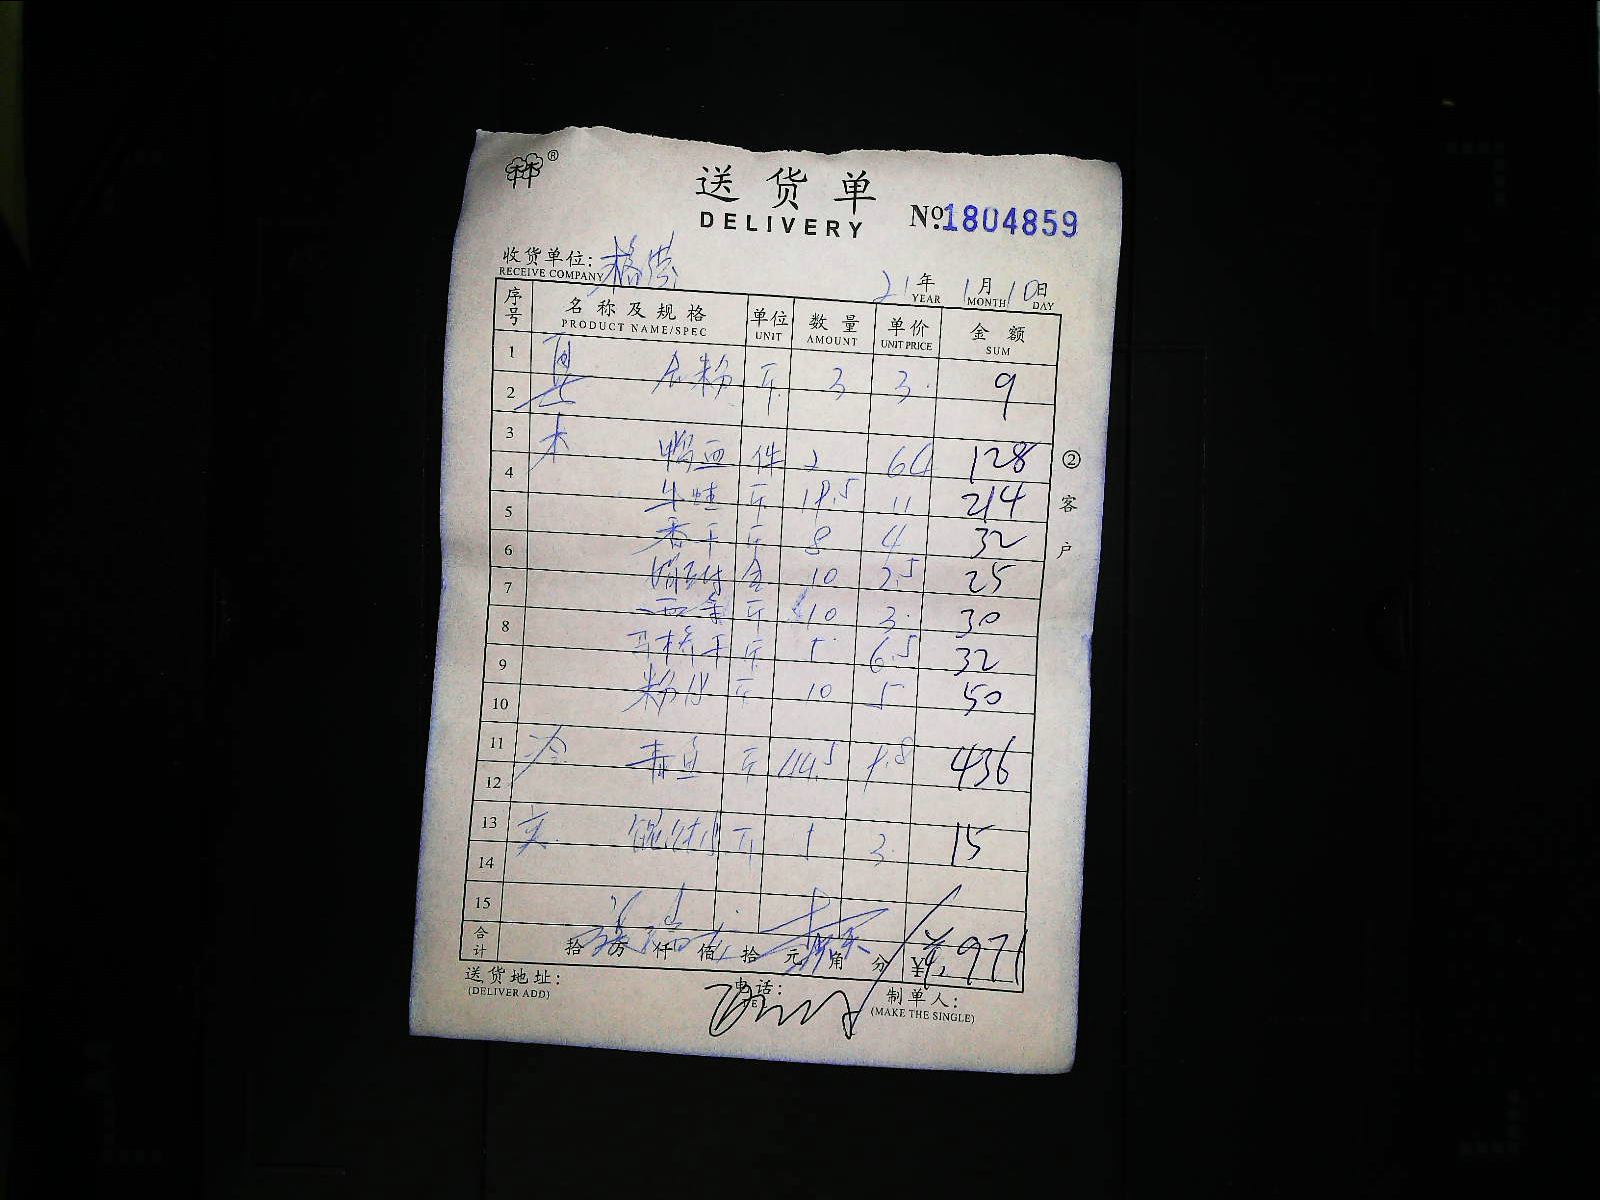 林 ®
送货单
DELIVERY
№1804859
收货单位:
RECEIVE COMPANY
21年 1月 10日
YEAR MONTH DAY
序号 名称及规格 单位 数量 单价 金额
PRODUCT NAME/SPEC UNIT AMOUNT UNIT PRICE SUM
1 斤 3 3. 9
2
3 木 鸭血 件 2 64 128
4 牛蛙 斤 19.5 11 214
5 香干 斤 8 4 32
6 10 2.5 25
7 斤 10 3. 30
8 斤 5 6.5 32
9 粉丝 斤 10 5 50
10
11 冷 青鱼 斤 44.5 9.8 436
12
13 斤 3. 15
14
15
合计 拾 万 仟 佰 拾 元 角 分 ¥ ¥971
送货地址:
(DELIVER ADD)
电话:
TEL
制单人:
(MAKE THE SINGLE)
②客户